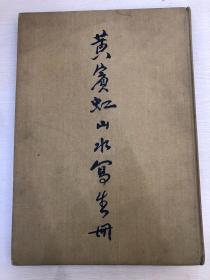 黄賓虹山水寫生冊